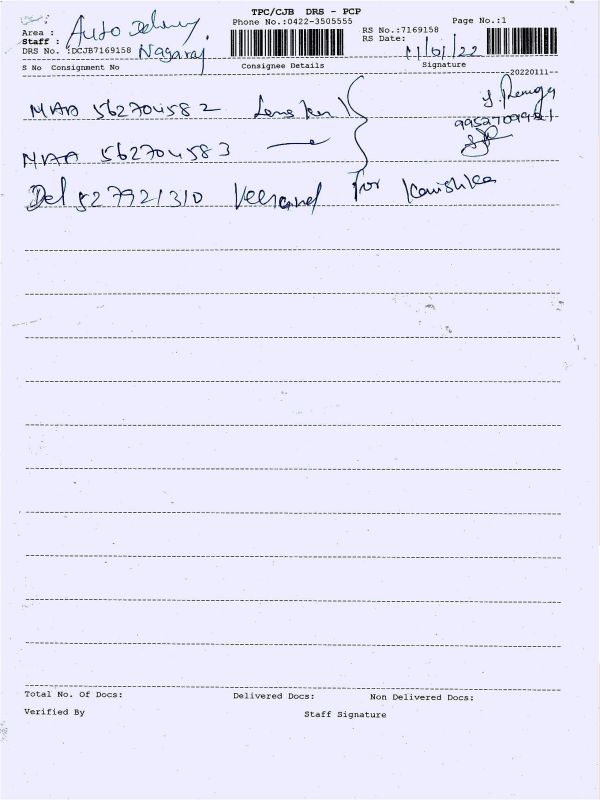 TPC/CJB DRS - PCP
Phone No.:0422-3505555
Page No.:1
Area : Auto Delivery
RS No.:7169158
Staff : Nagaraj
RS Date: 11/01/22
DRS No. :DCJB7169158
S No Consignment No Consignee Details Signature
20220111
MAA 562704582
MAA 562704583
Del 527921310 For Kanishka
Total No. Of Docs: Delivered Docs: Non Delivered Docs:
Verified By Staff Signature